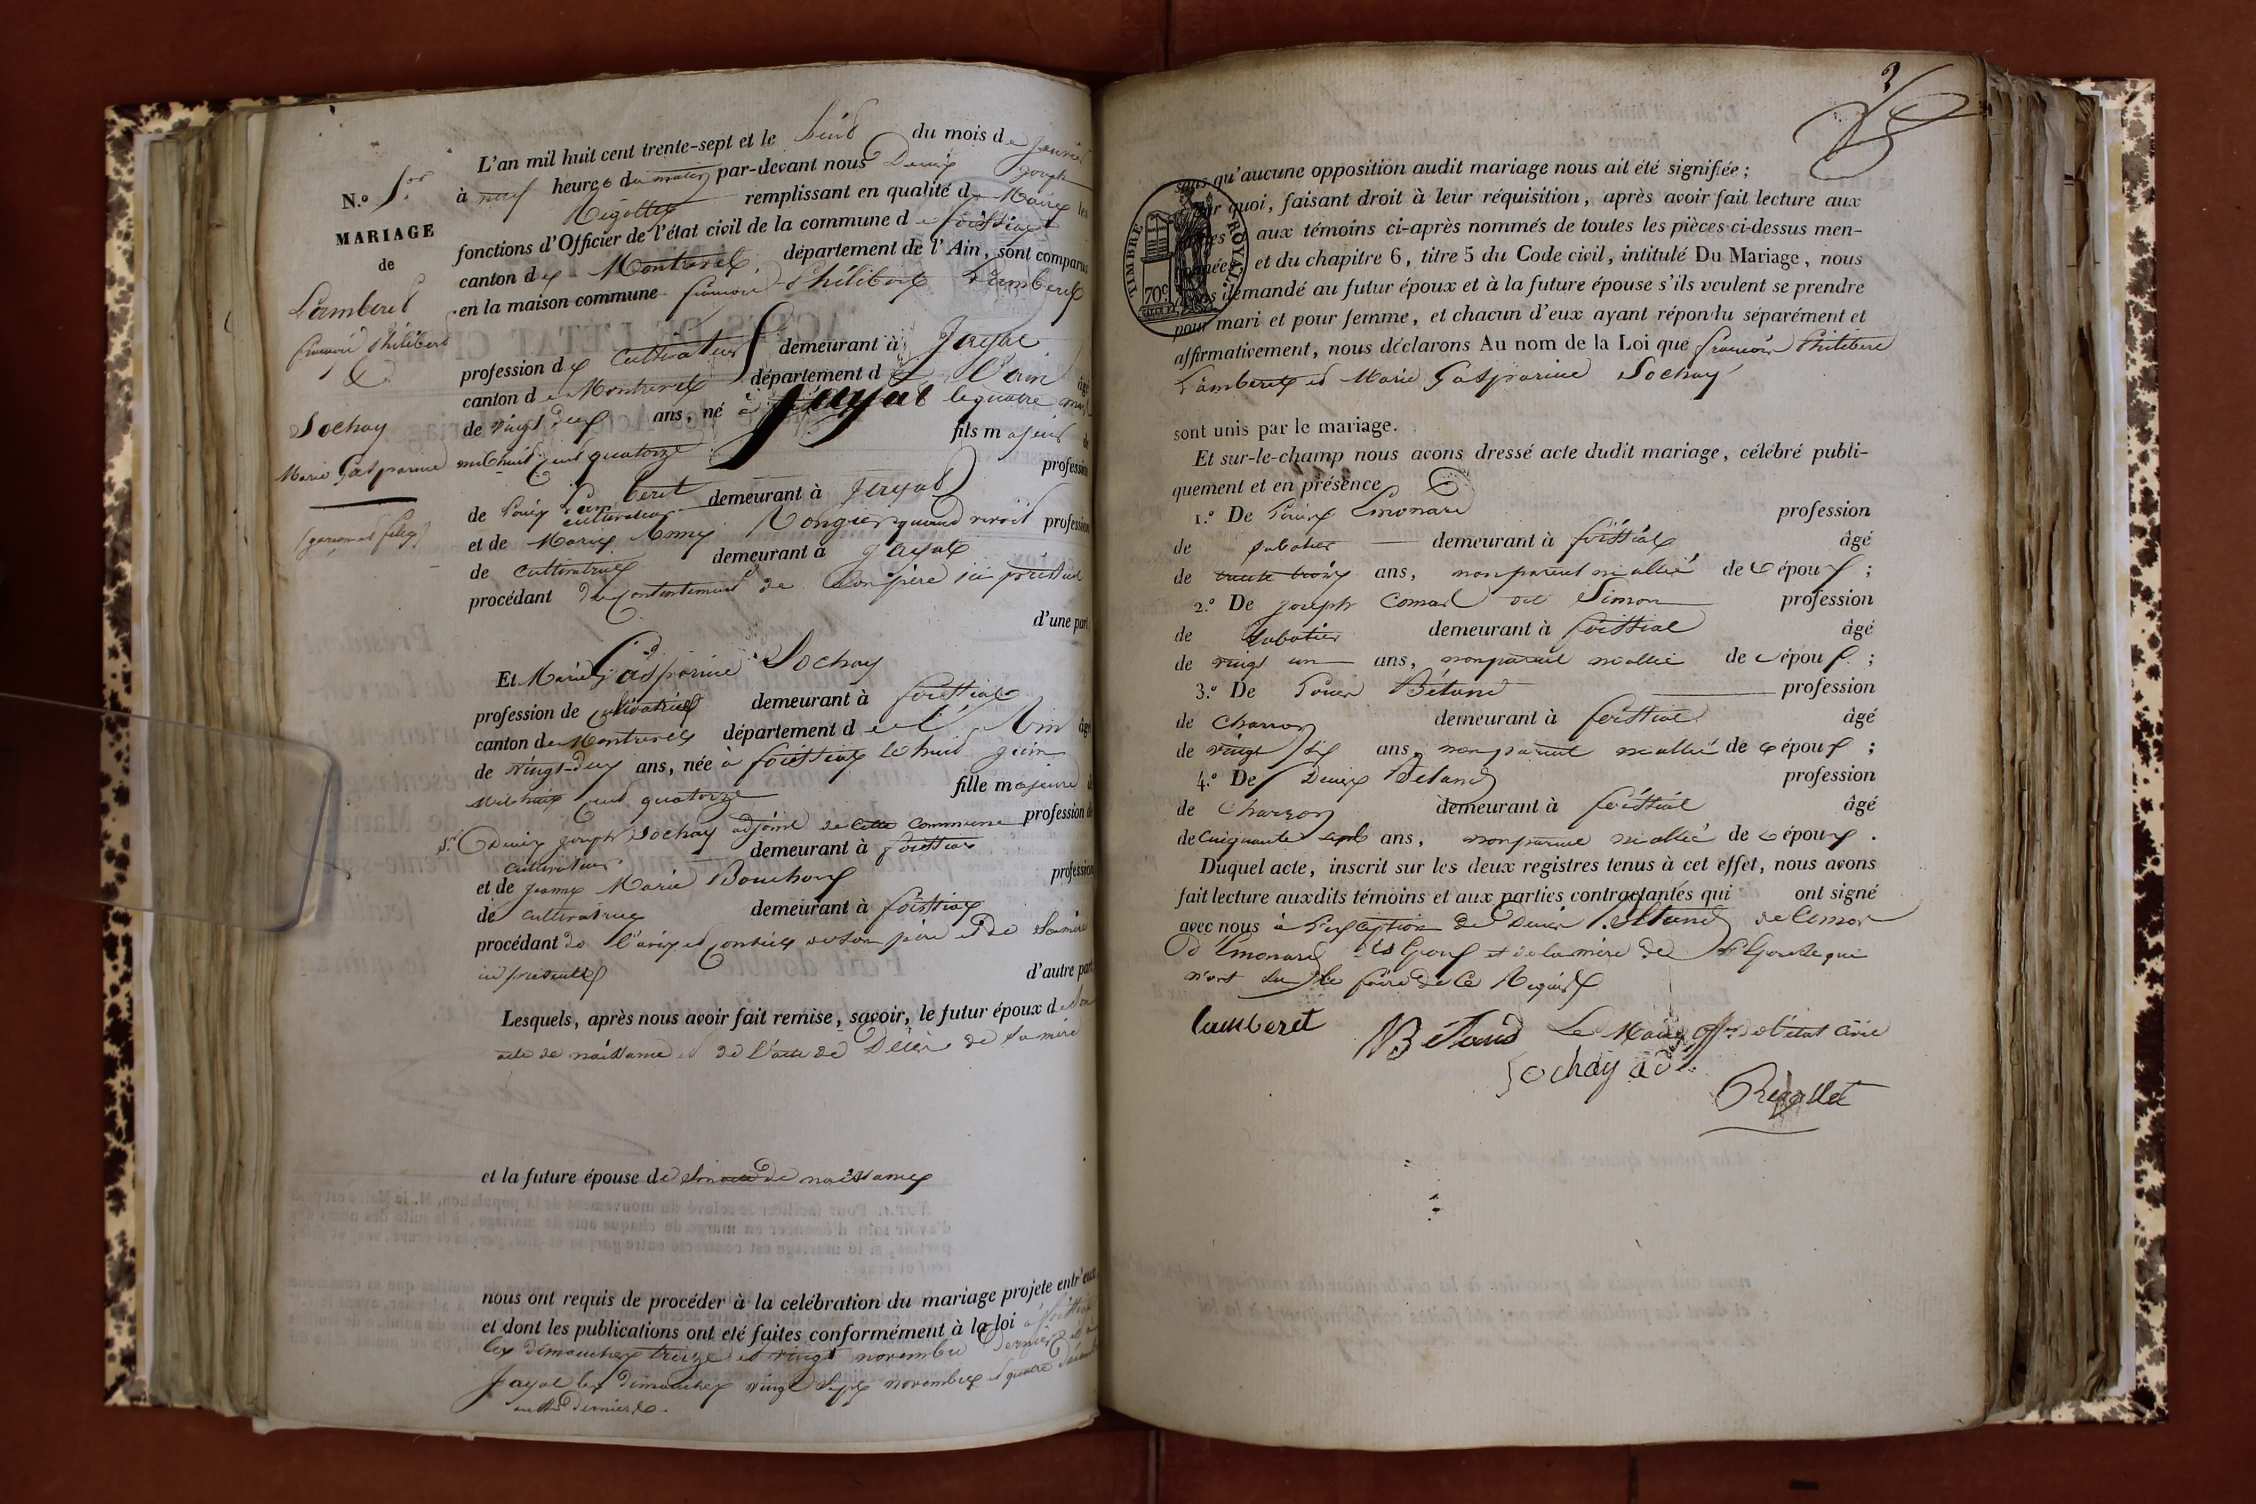 N.º 1.er
MARIAGE
de
Lamberet
françois Philibert
&
Sochay
Marie Gasparine
(garçon et fille)
L'an mil huit cent trente-sept et le huit du mois de janvier
à neuf heures du matin par-devant nous Denis Joseph
Rigollet remplissant en qualité de Maire les
fonctions d'Officier de l'état civil de la commune de foissiat
canton de Montrevel, département de l'Ain, sont comparus
en la maison commune françois Philibert Lamberet
profession de cultivateur demeurant à Jayat
canton de Montrevel département de l'ain âgé
de vingt deux ans, né à Jayat le quatre mars
mil huit cent quatorze fils majeur de
de Louis Lamberet demeurant à Jayat profession
cultivateur
et de Marie Anne Rongier quand vivoit profession
de cultivatrice demeurant à Jayat
procédant du consentement de son père ici présent
d'une part
Et Marie Gasparine Sochay
profession de cultivatrice demeurant à foissiat
canton de Montrevel département de l'Ain âgé
de vingt-deux ans, née à foissiat le huit juin
mil huit cent quatorze fille majeure de
Sr. Denis Joseph Sochay adjoint de cette commune profession de
cultivateur demeurant à foissiat
et de Jeanne Marie Bouchoux profession
de cultivatrice demeurant à foissiat
procédant de l'avis et conseil de son père et de sa mère
ici présents d'autre part
Lesquels, après nous avoir fait remise, savoir, le futur époux de son
acte de naissance et de l'acte de Décès de sa mère
et la future épouse de son acte de naissance
nous ont requis de procéder à la celébration du mariage projete entr'eux
et dont les publications ont eté faites conformément à la loi à foissiat
les dimanches treize et vingt novembre dernier et à
Jayat les dimanches vingt sept novembre et quatre décembre
aussi dernier
2
TIMBRE ROYAL
70c
sans qu'aucune opposition audit mariage nous ait été signifiée ;
Sur quoi, faisant droit à leur réquisition, après avoir fait lecture aux
aux témoins ci-après nommés de toutes les pièces ci-dessus men-
et du chapitre 6, titre 5 du Code civil, intitulé Du Mariage, nous
demandé au futur époux et à la future épouse s'ils veulent se prendre
pour mari et pour femme, et chacun d'eux ayant répondu séparément et
affirmativement, nous déclarons Au nom de la Loi que françois Philibert
Lamberet et Marie Gasparine Sochay
sont unis par le mariage.
Et sur-le-champ nous avons dressé acte dudit mariage, célébré publi-
quement et en présence
1.º De Louis Emonard profession
de sabotier demeurant à foissiat âgé
de trente trois ans, non parent ni allié des époux ;
2.º De joseph Comas dit Simon profession
de Sabotier demeurant à foissiat âgé
de vingt un ans, non parent ni allié des époux ;
3.º De Louis Bétand profession
de Charron demeurant à foissiat âgé
de vingt six ans, non parent ni allié des époux ;
4.º De Denis Bétand profession
de Charron demeurant à foissiat âgé
de Cinquante sept ans, non parent ni allié des époux.
Duquel acte, inscrit sur les deux registres tenus à cet effet, nous avons
fait lecture auxdits témoins et aux parties contractantes qui ont signé
avec nous à l'exception de Denis Bétand de Comas
d'Emonard et de la mère de qui
n'ont su le faire de ce Requis
Lamberet Bétand Le Maire offr. de l'état civil
Sochay adj.
Rigollet